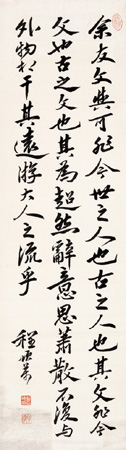 余友文與可非今世之人也古之人也其文非今
之文也古之文也其為超然辭意思蕭散不復與
外物相干其遠游大人之流乎
程頌萬